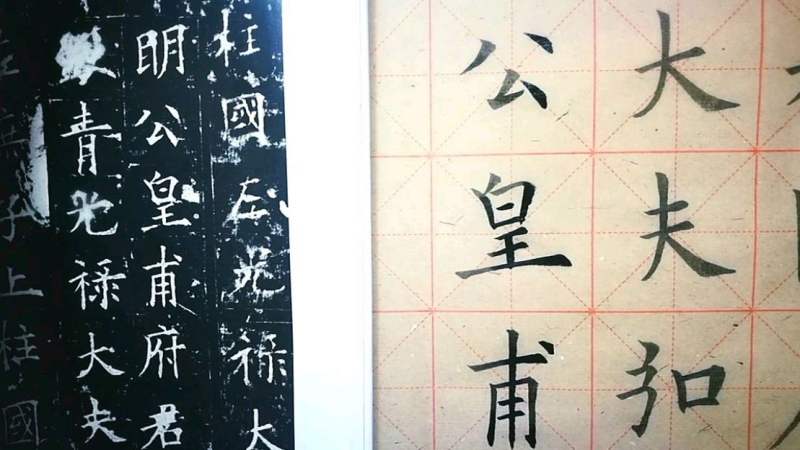 柱國左光祿大
明公皇甫府君
青光祿大夫
子上柱國
大夫弘
公皇甫